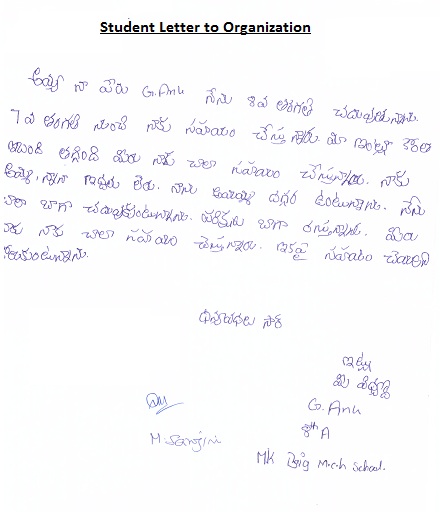 Student Letter to Organization
అయ్యా నా పేరు G. Anu నేను 8వ తరగతి చదువుతున్నాను.
7వ తరగతి నుండి నాకు సహాయం చేస్తున్నారు. మా ఇంట్లో
మీరు నాకు చాలా సహాయం చేస్తున్నారు. నాకు
అమ్మ, నాన్న ఇద్దరు లేరు. నాను దగ్గర ఉంటున్నాను. నేను
చాలా బాగా చదువుకుంటున్నాను. పరీక్షలు బాగా రాస్తున్నాను. మీరు
నాకు చాలా సహాయం చేస్తున్నారు. ఇకపై సహాయం చేయాలని
కోరుకుంటున్నాను.
ధన్యవాదలు సార్
ఇట్లు
మీ విద్యార్థి
G. Anu
8th A
M. Sanjini
MK Baig M.C.H School.